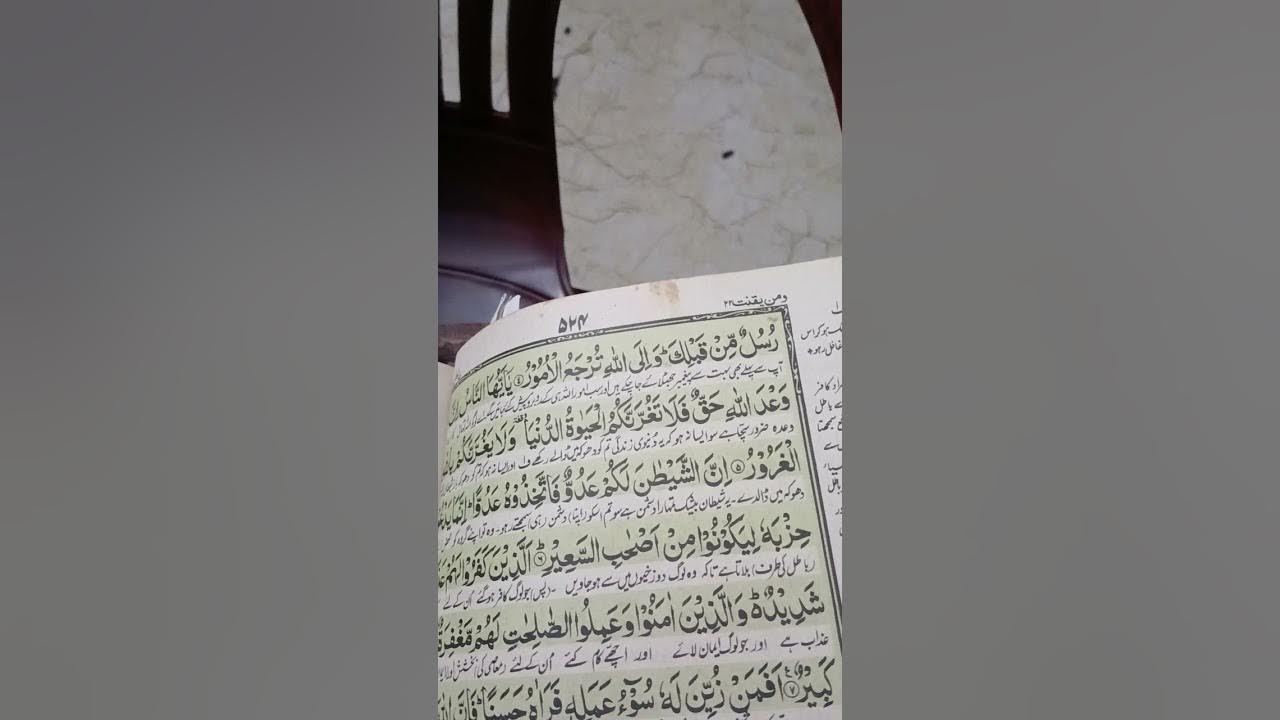 ومن یقنت ۲۲
۵۲۴
رُسُلٌ مِّنْ قَبْلِكَ ؕ وَاِلَی اللّٰهِ تُرْجَعُ الْاُمُوْرُ ۴ یٰۤاَیُّهَا النَّاسُ
آپ سے پہلے بھی بہت سے پیغمبر جھٹلائے جاچکے ہیں اور سب امور اللہ ہی کے روبرو پیش کئے جائیں گے
وَعْدَ اللّٰهِ حَقٌّ فَلَا تَغُرَّنَّكُمُ الْحَیٰوةُ الدُّنْیَا ۥ وَلَا یَغُرَّنَّكُمْ
وعدہ ضرور سچا ہے سو ایسا نہ ہو کہ یہ دنیوی زندگی تم کو دھوکہ میں ڈالے رکھے ف اور ایسا نہ ہو کہ تم کو دھوکہ
الْغَرُوْرُ ۵ اِنَّ الشَّیْطٰنَ لَكُمْ عَدُوٌّ فَاتَّخِذُوْهُ عَدُوًّا ؕ اِنَّمَا
دھوکہ میں ڈالدے ۔ یہ شیطان بیشک تمہارا دشمن ہے سو تم اسکو (اپنا) دشمن (ہی) سمجھتے رہو ۔ وہ تو اپنے گروہ کو
حِزْبَهٗ لِیَكُوْنُوْا مِنْ اَصْحٰبِ السَّعِیْرِ ؕ ۶ اَلَّذِیْنَ كَفَرُوْا لَهُمْ
(باطل کی طرف) بلاتا ہے تاکہ وہ لوگ دوزخیوں میں سے ہو جاویں ۔ (پس) جو لوگ کافر ہو گئے ان کے لئے
شَدِیْدٌ ؕ وَالَّذِیْنَ اٰمَنُوْا وَعَمِلُوا الصّٰلِحٰتِ لَهُمْ مَّغْفِرَةٌ
عذاب ہے اور جو لوگ ایمان لائے اور اچھے کام کئے ان کے لئے (معاصی کی) بخشش اور
كَبِیْرٌ ۷ اَفَمَنْ زُیِّنَ لَهٗ سُوْٓءُ عَمَلِهٖ فَرَاٰهُ حَسَنًا ؕ فَاِنَّ